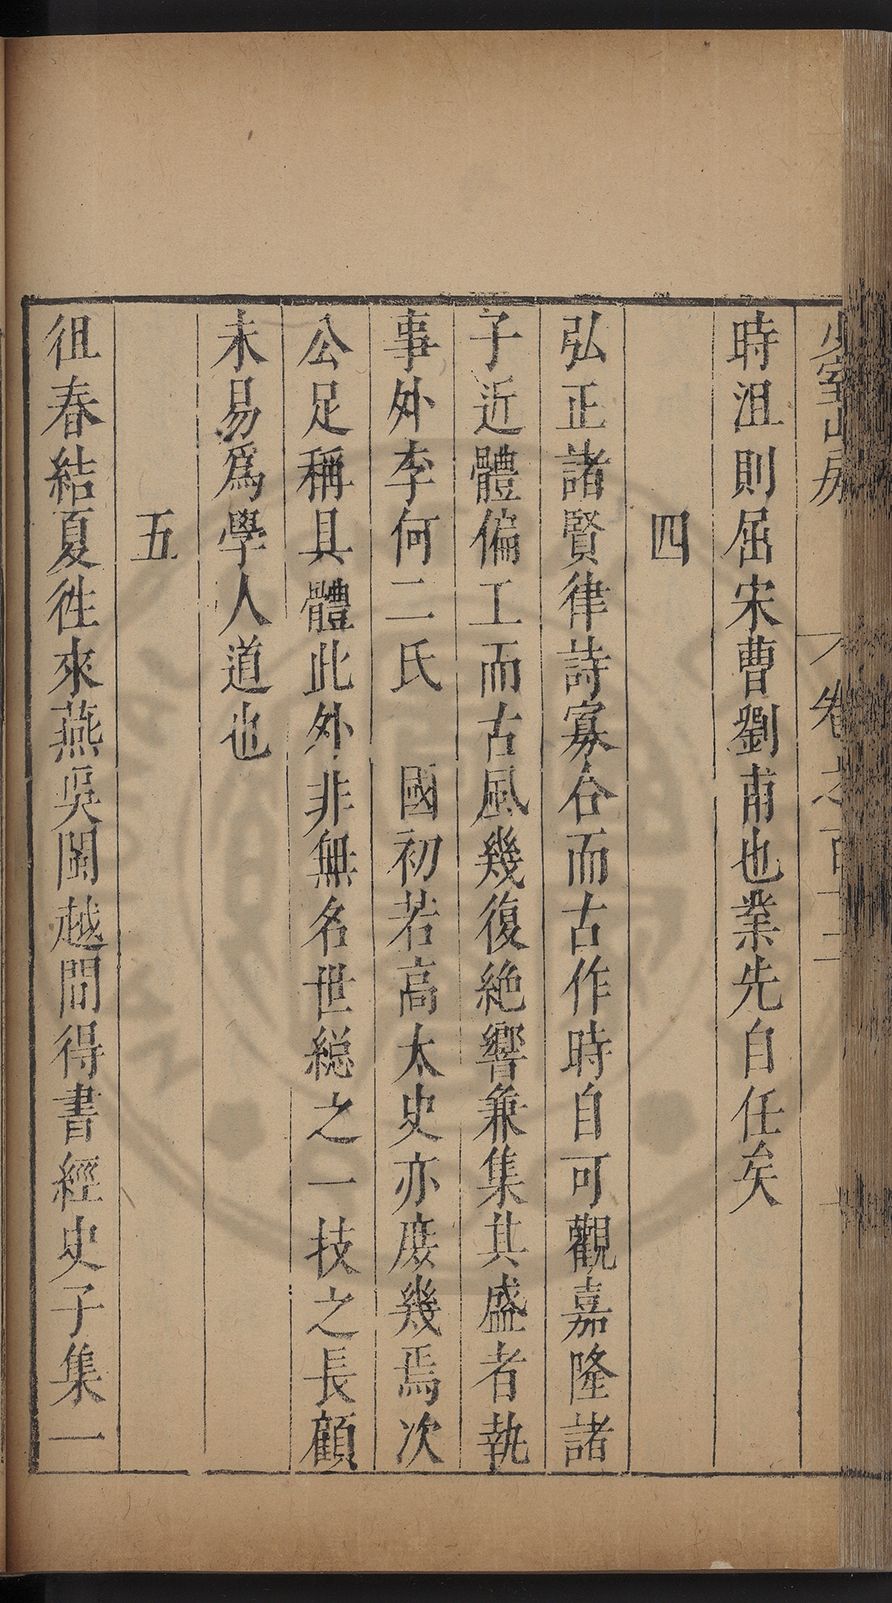 少室山房　卷之百十二
時沮則屈宋曹劉甫也業先自任矣
四
弘正諸賢律詩寡合而古作時自可觀嘉隆諸
子近體偏工而古風幾復絶響兼集其盛者執
事外李何二氏　國初若高太史亦庶幾焉次
公足稱具體此外非無名世総之一技之長顧
未易爲學人道也
五
徂春結夏徃來燕吳閩越間得書經史子集一